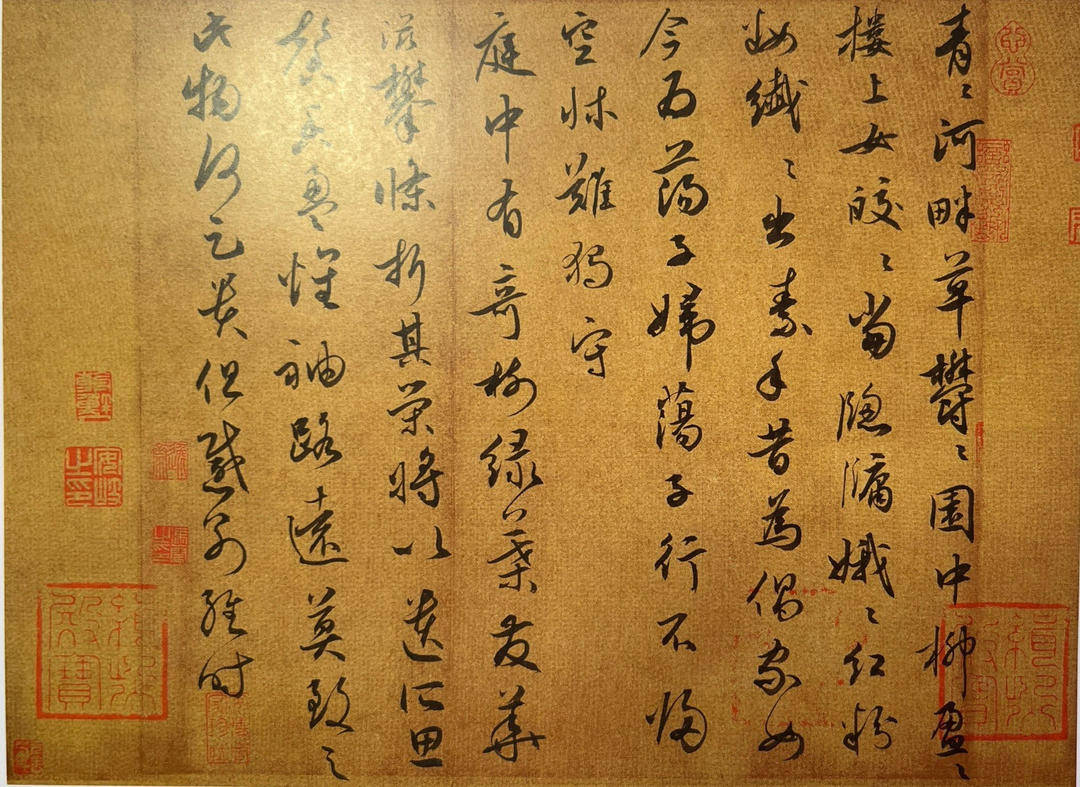 青〻河畔草鬱〻園中柳盈〻
樓上女皎〻當牕牖娥〻紅粉
妝纖〻出素手昔為倡家女
今為蕩子婦蕩子行不歸
空牀難獨守
庭中有奇樹綠葉發華
滋攀條折其榮將以遺所思
馨香盈懷袖路遠莫致之
此物何足貴但感別經時